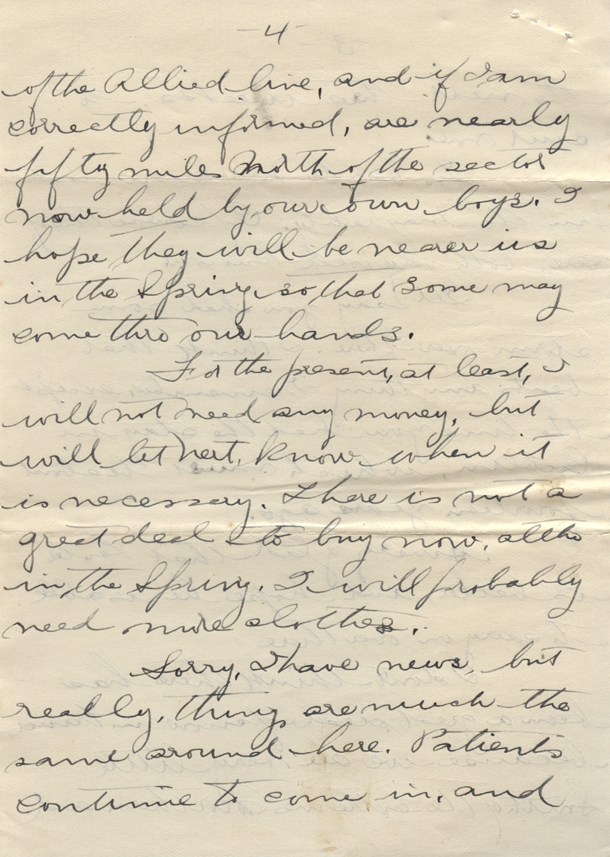 -4-
of the Allied line, and if I am
correctly informed, are nearly
fifty miles North of the sector
now held by our own boys. I
hope they will be nearer us
in the Spring, so that some may
come thro our hands.
For the present, at least, I
will not need any money, but
will let know when it
is necessary. There is not a
great deal to buy now, altho
in the Spring, I will probably
need more clothes.
Sorry, I have news, but
really, things are much the
same around here. Patients
continue to come in, and